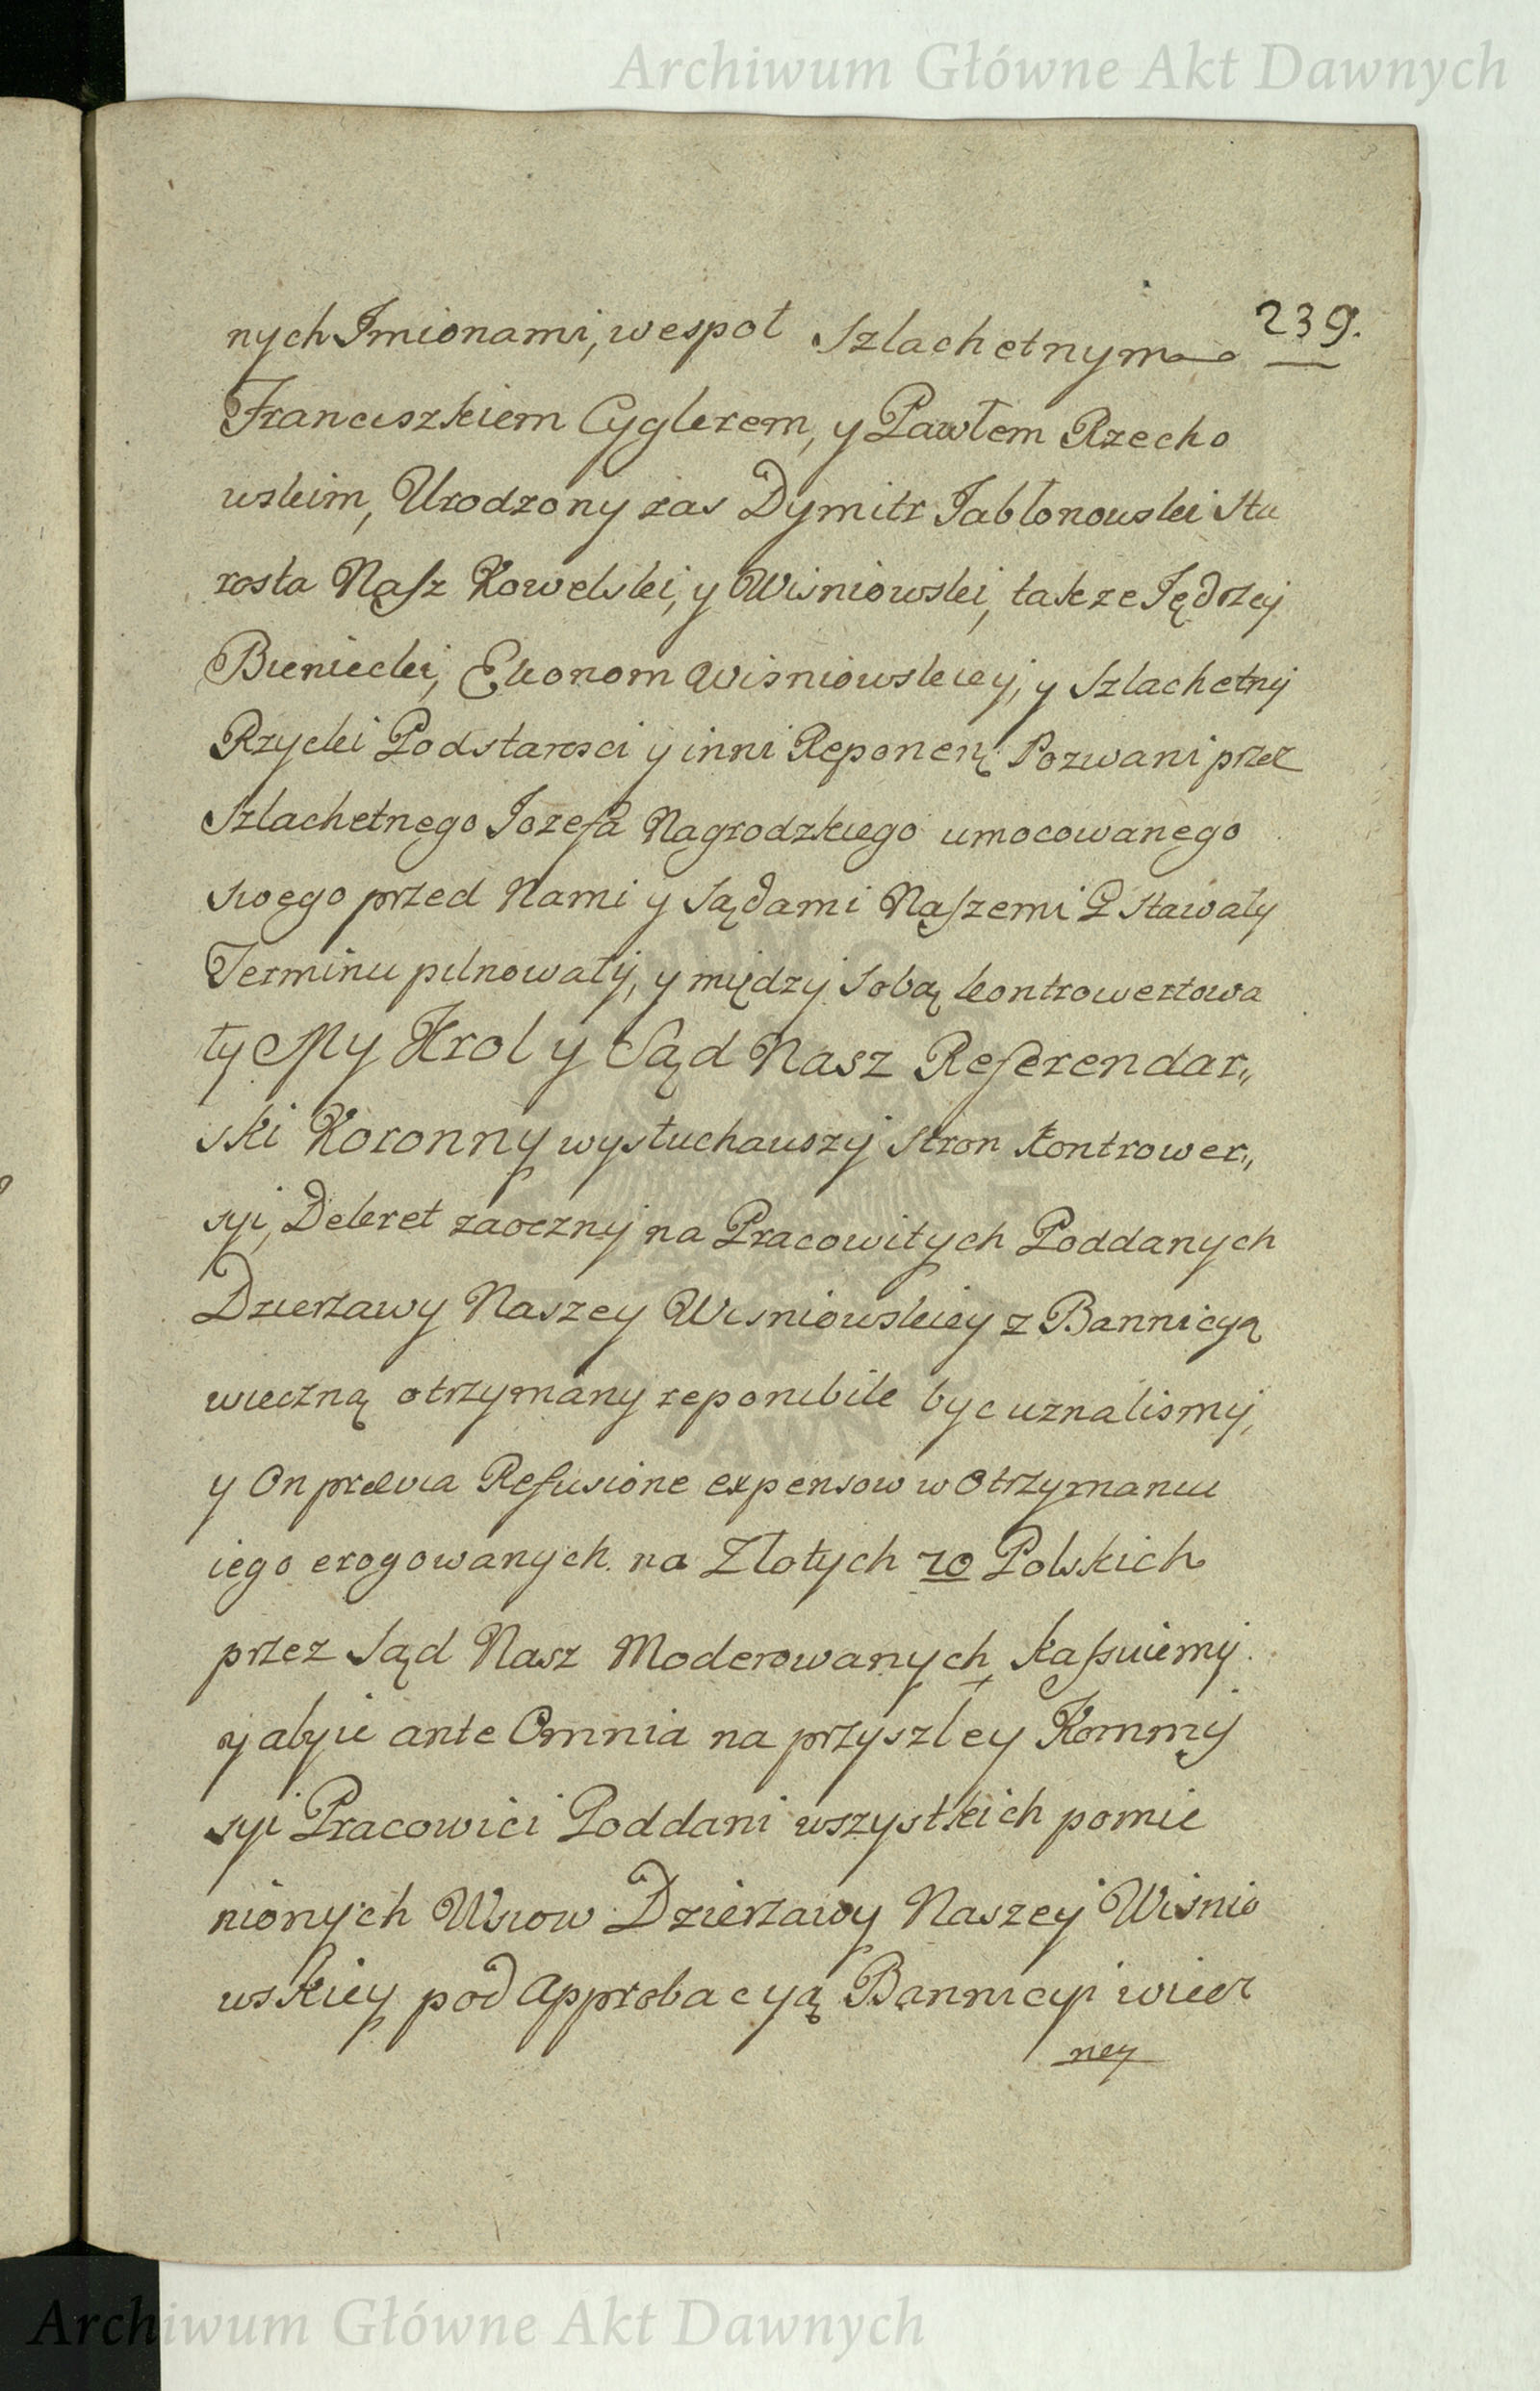 Archiwum Główne Akt Dawnych
239.
nych Imionami, wespoł Szlachetnym
Franciszkiem Cyglerem, y Pawłem Rzecho
wskim, Urodzony zas Dymitr Jabłonowski Sta
rosta Nasz Kowelski, y Wisniowski, takze Jędrzej
Bieniecki, Ekonom Wisniowskiey, y Szlachetny
Rzycki Podstarosci y inni Reponen: Pozwani przez
Szlachetnego Jozefa Nagrodzkiego umocowanego
swego przed Nami y Sądami Naszemi P Stawały
Terminu pilnowały, y między Sobą kontrowertowa
ły My Krol y Sąd Nasz Referendar,,
ski Koronny wysłuchawszy Stron Kontrower,,
syi, Dekret zaoczny na Pracowitych Poddanych
Dzierzawy Naszey Wisniowskiey z Bannicyą
wieczną otrzymany reponibile byc uznalismy,
y On prævia Refusione expensow w otrzymaniu
iego erogowanych na Złotych 10 Polskich
przez Sąd Nasz Moderowanych kassuiemy.
y abyie ante Omnia na przyszley Kommy
syi Pracowici Poddani wszystkich pomie
nionych Wsiow Dzierzawy Naszey Wisnio
wskiey pod Approbacyą Bannicyi wiecz
ney
Archiwum Główne Akt Dawnych